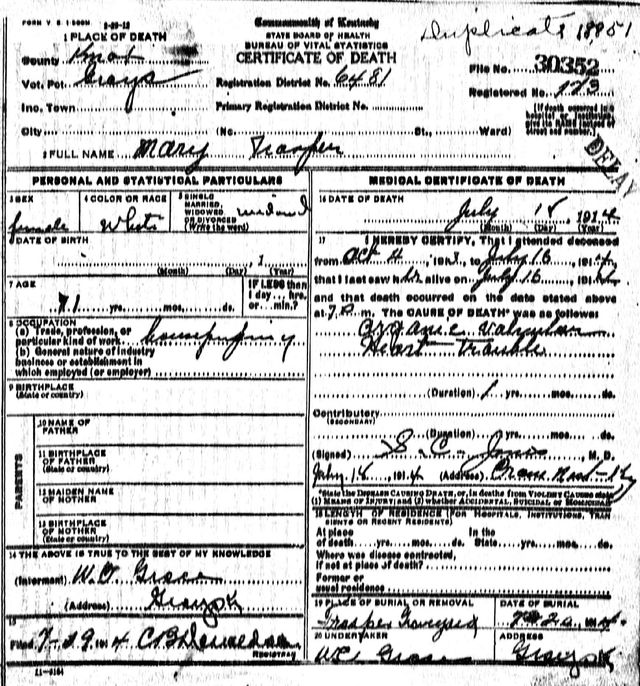 FORM V S 1 3-29-12
Commonwealth of Kentucky
STATE BOARD OF HEALTH
BUREAU OF VITAL STATISTICS
CERTIFICATE OF DEATH
Duplicate 18851
1 PLACE OF DEATH
County Knox
Vot. Pct. Grays
Registration District No. 6481
File No. 30352
Inc. Town
Primary Registration District No.
Registered No. 173
City (No. St., Ward)
[If death occurred in a hospital or institution, give its NAME instead of street and number.]
DELAY
2 FULL NAME Mary
PERSONAL AND STATISTICAL PARTICULARS
3 SEX female
4 COLOR OR RACE White
5 SINGLE, MARRIED, WIDOWED OR DIVORCED (Write the word) widowed
DATE OF BIRTH
, 1
(Month) (Day) (Year)
7 AGE
71 yrs. mos. ds.
IF LESS than 1 day... hrs. or... min.?
8 OCCUPATION
(a) Trade, profession, or particular kind of work
(b) General nature of industry
business or establishment in
which employed (or employer)
9 BIRTHPLACE
(State or country)
PARENTS
10 NAME OF FATHER
11 BIRTHPLACE OF FATHER (State or country)
12 MAIDEN NAME OF MOTHER
13 BIRTHPLACE OF MOTHER (State or country)
14 THE ABOVE IS TRUE TO THE BEST OF MY KNOWLEDGE
(Informant)
(Address)
15
Filed 7-29 1914 C B
REGISTRAR
11-3184
MEDICAL CERTIFICATE OF DEATH
16 DATE OF DEATH
July 18, 1914
(Month) (Day) (Year)
17 I HEREBY CERTIFY, That I attended deceased
from Oct 4, 191 , to July 16, 191
that I last saw h alive on July 16, 191
and that death occurred on the date stated above
at m. The CAUSE OF DEATH* was as follows:
Organic Valvular
Heart Trouble
(Duration) 1 yrs. mos. ds.
Contributory
(SECONDARY)
(Duration) yrs. mos. ds.
(Signed) S. C. Jones, M. D.
July 18, 1914 (Address)
*State the DISEASE CAUSING DEATH, or, in deaths from VIOLENT CAUSES state
(1) MEANS OF INJURY; and (2) whether ACCIDENTAL, SUICIDAL or HOMICIDAL
18 LENGTH OF RESIDENCE (FOR HOSPITALS, INSTITUTIONS, TRANSIENTS OR RECENT RESIDENTS)
At place of death yrs. mos. ds. In the State yrs. mos. ds.
Where was disease contracted,
if not at place of death?
Former or
usual residence
19 PLACE OF BURIAL OR REMOVAL
Graveyard
DATE OF BURIAL
20 1914
20 UNDERTAKER
ADDRESS